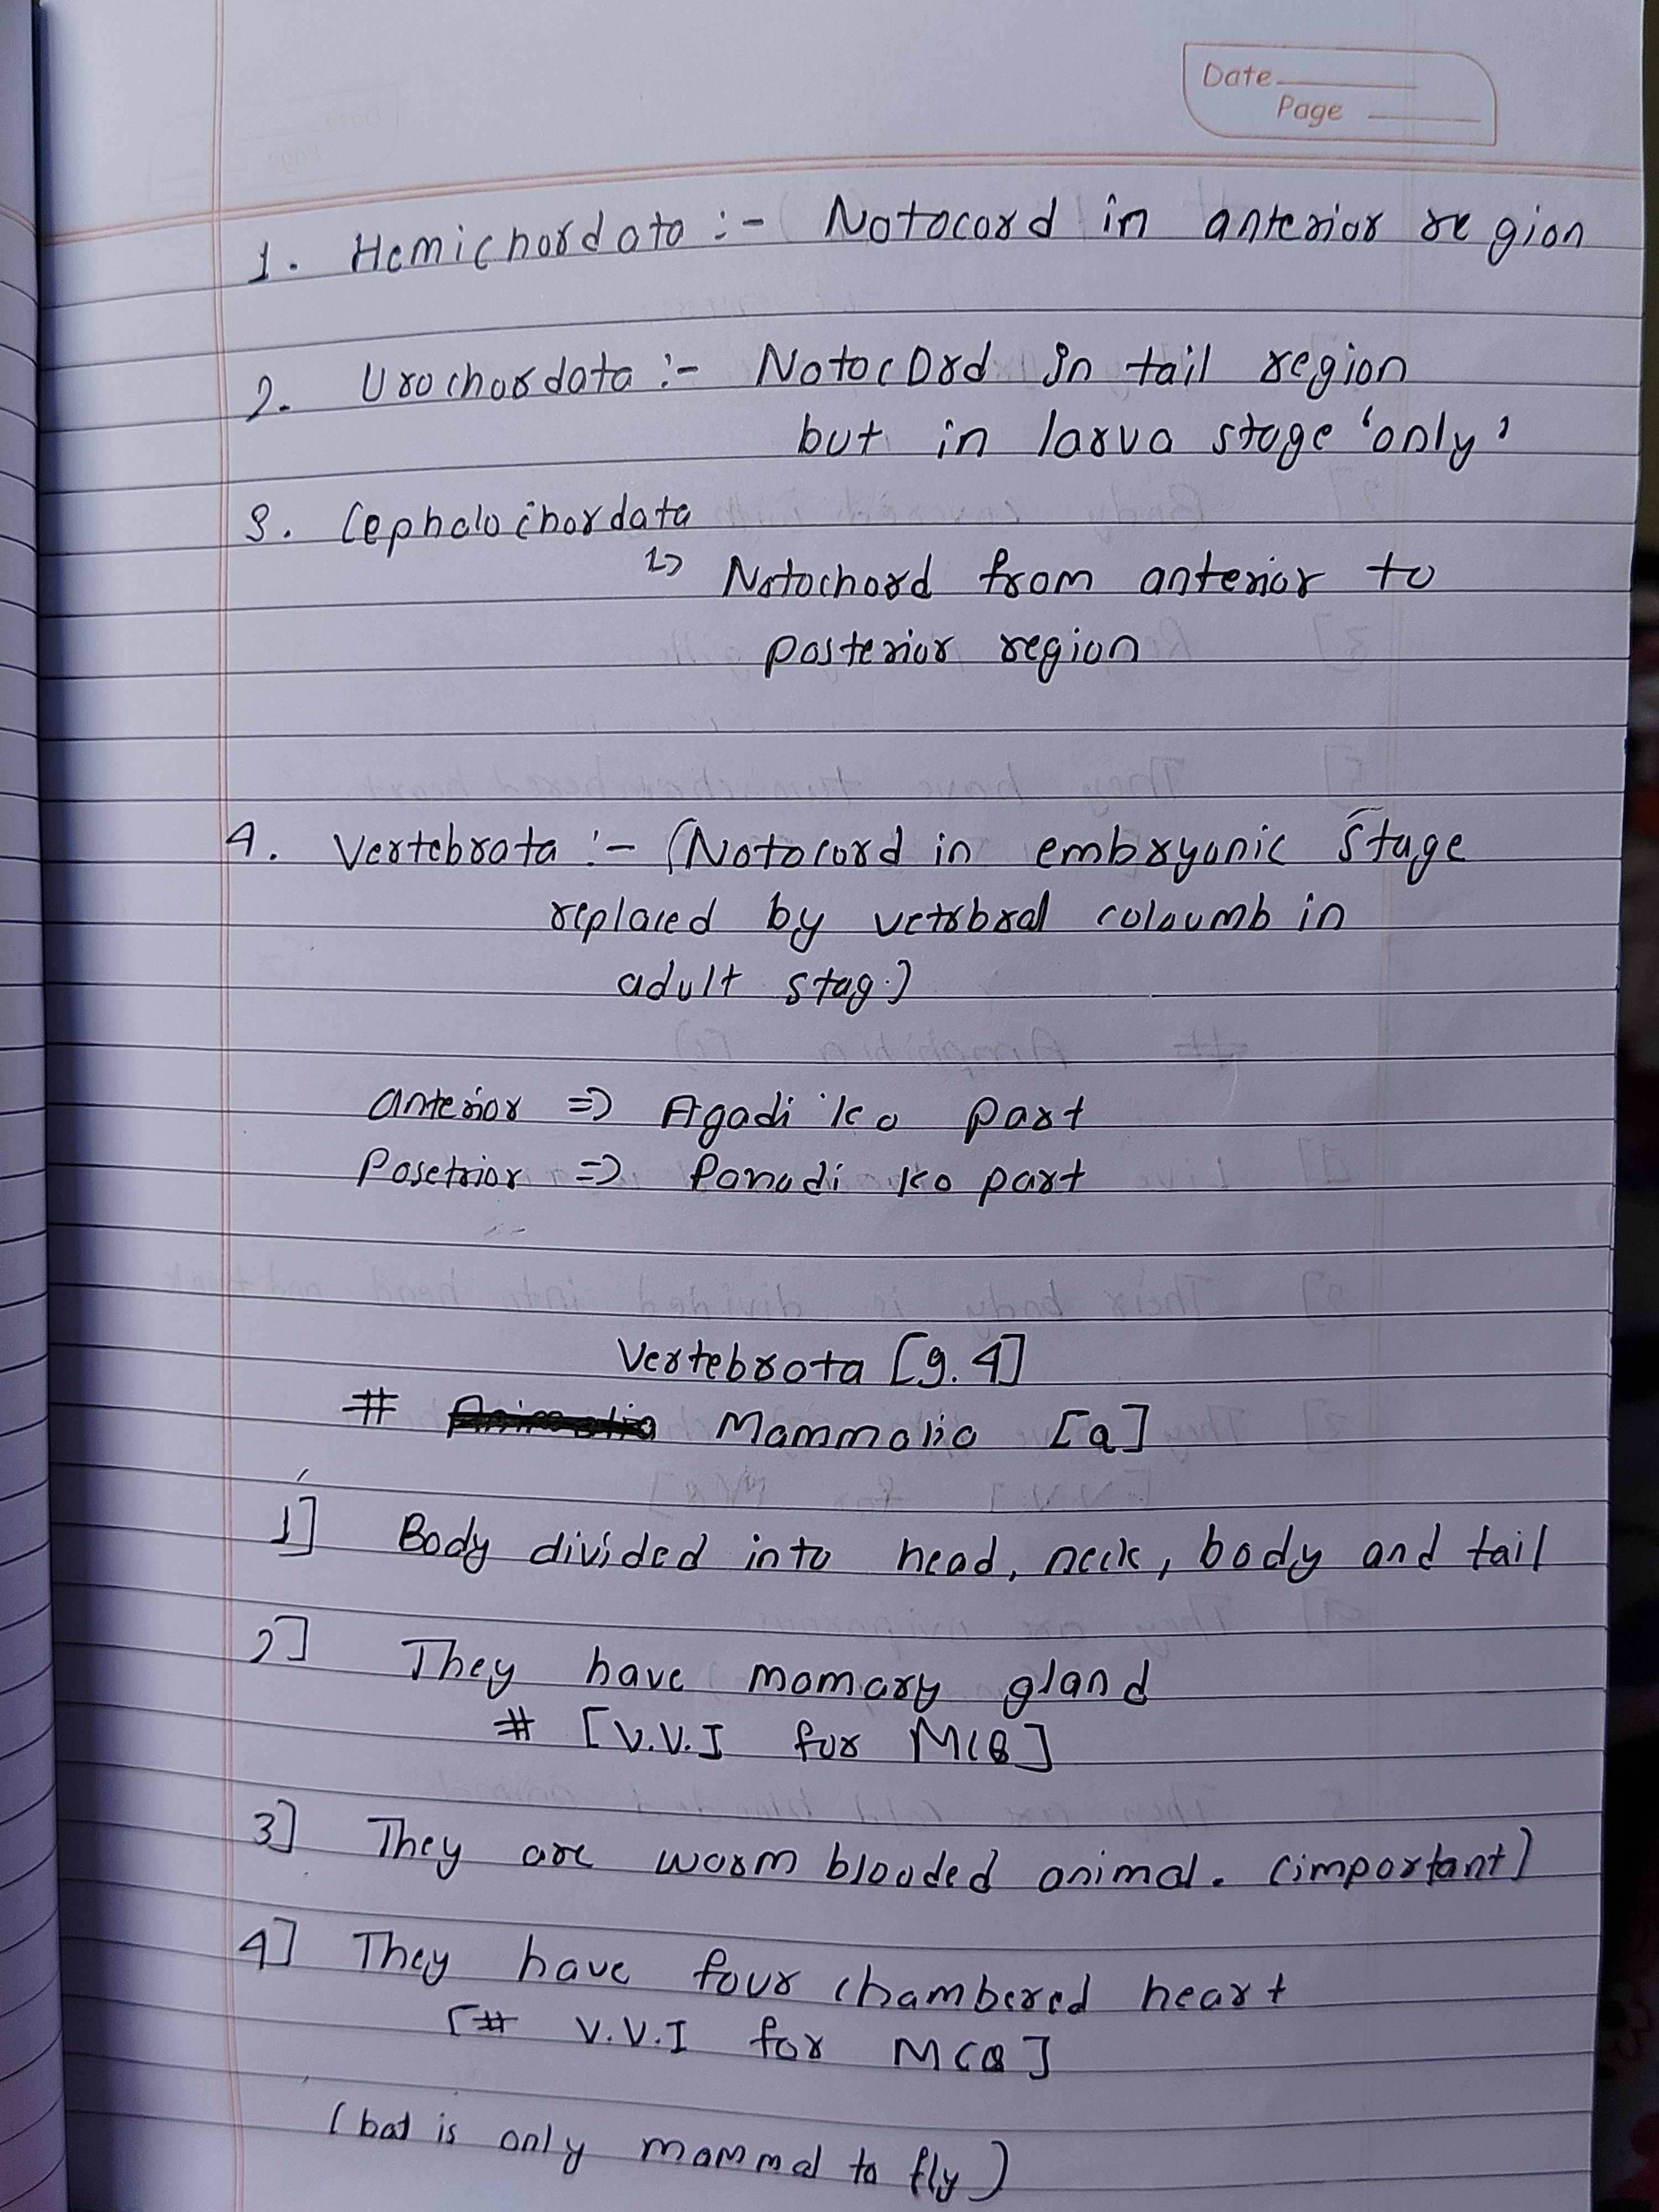 Date
Page
1. Hemichordata :- Notocord in anterior region
2. Urochordata :- Notocord in tail region
but in larva stage 'only'
3. Cephalochordata
1) Notochord from anterior to
posterior region
4. Vertebrata :- (Notocord in embryonic stage
replaced by vetrbral coloumb in
adult stag.)
anterior => Agadi ko part
Posetrior => Panadi ko part
Vertebrata [9.4]
# Mammalia [a]
1] Body divided into head, neck, body and tail
2] They have mamary gland
# [V.V.I for MCQ]
3] They are warm blooded animal. (important)
4] They have four chambered heart
[# V.V.I for MCQ]
(bat is only mammal to fly)